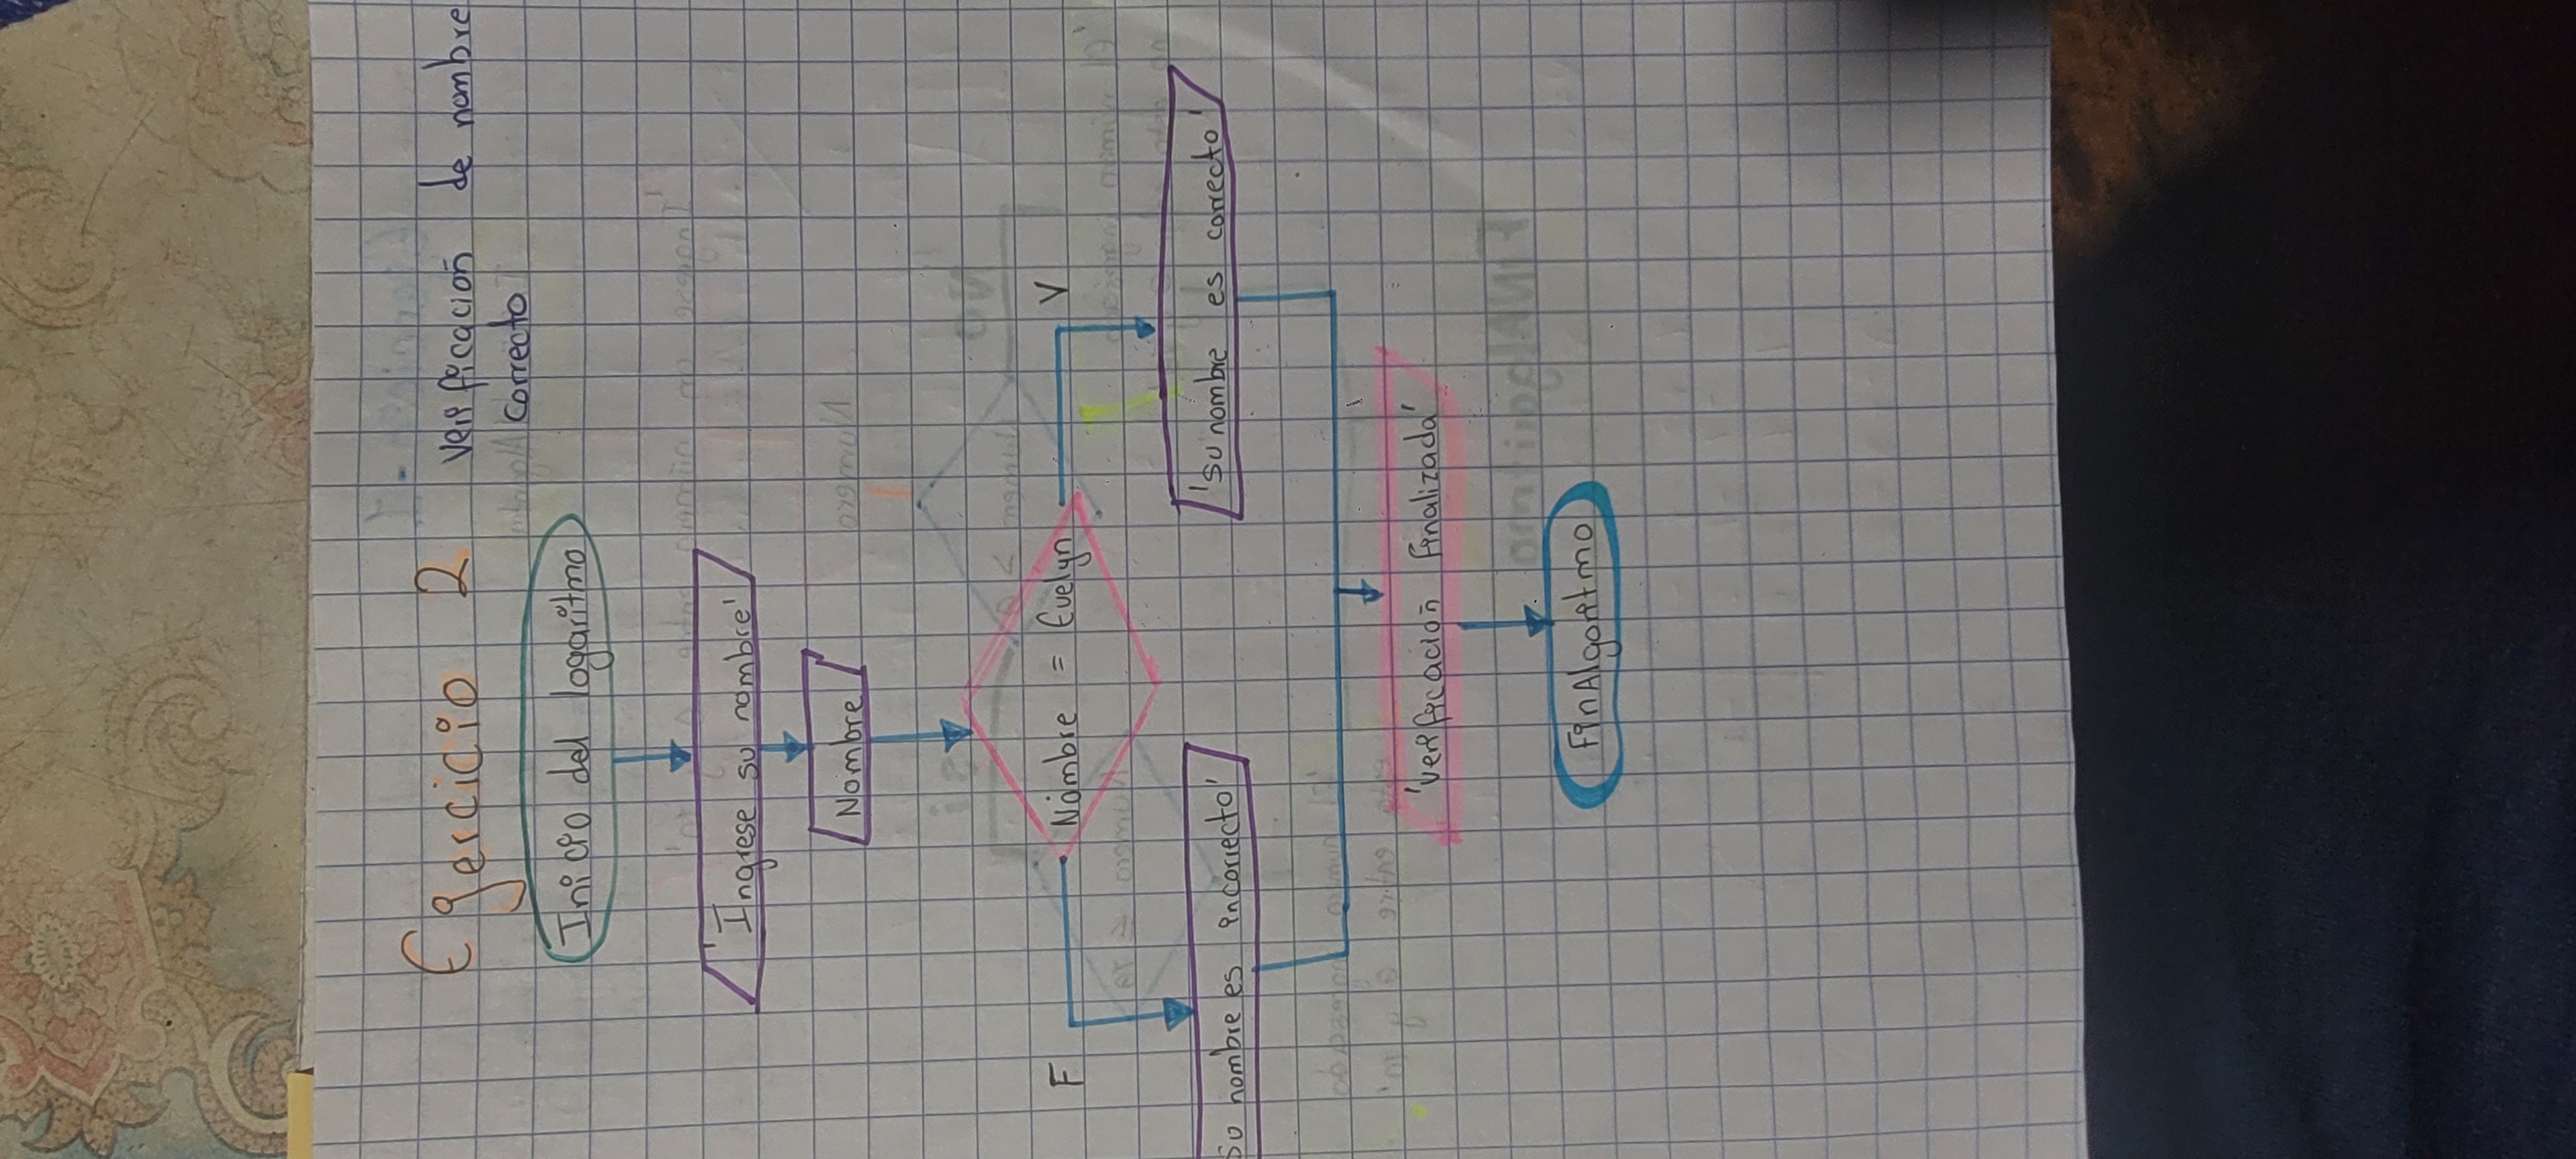 Ejercicio 2 verificación de nombre
correcto
Inicio del logaritmo
'Ingrese su nombre'
Nombre
F Nombre = Evelyn V
Su nombre es incorrecto' 'Su nombre es correcto'
'Verificación Finalizada'
FinAlgoritmo